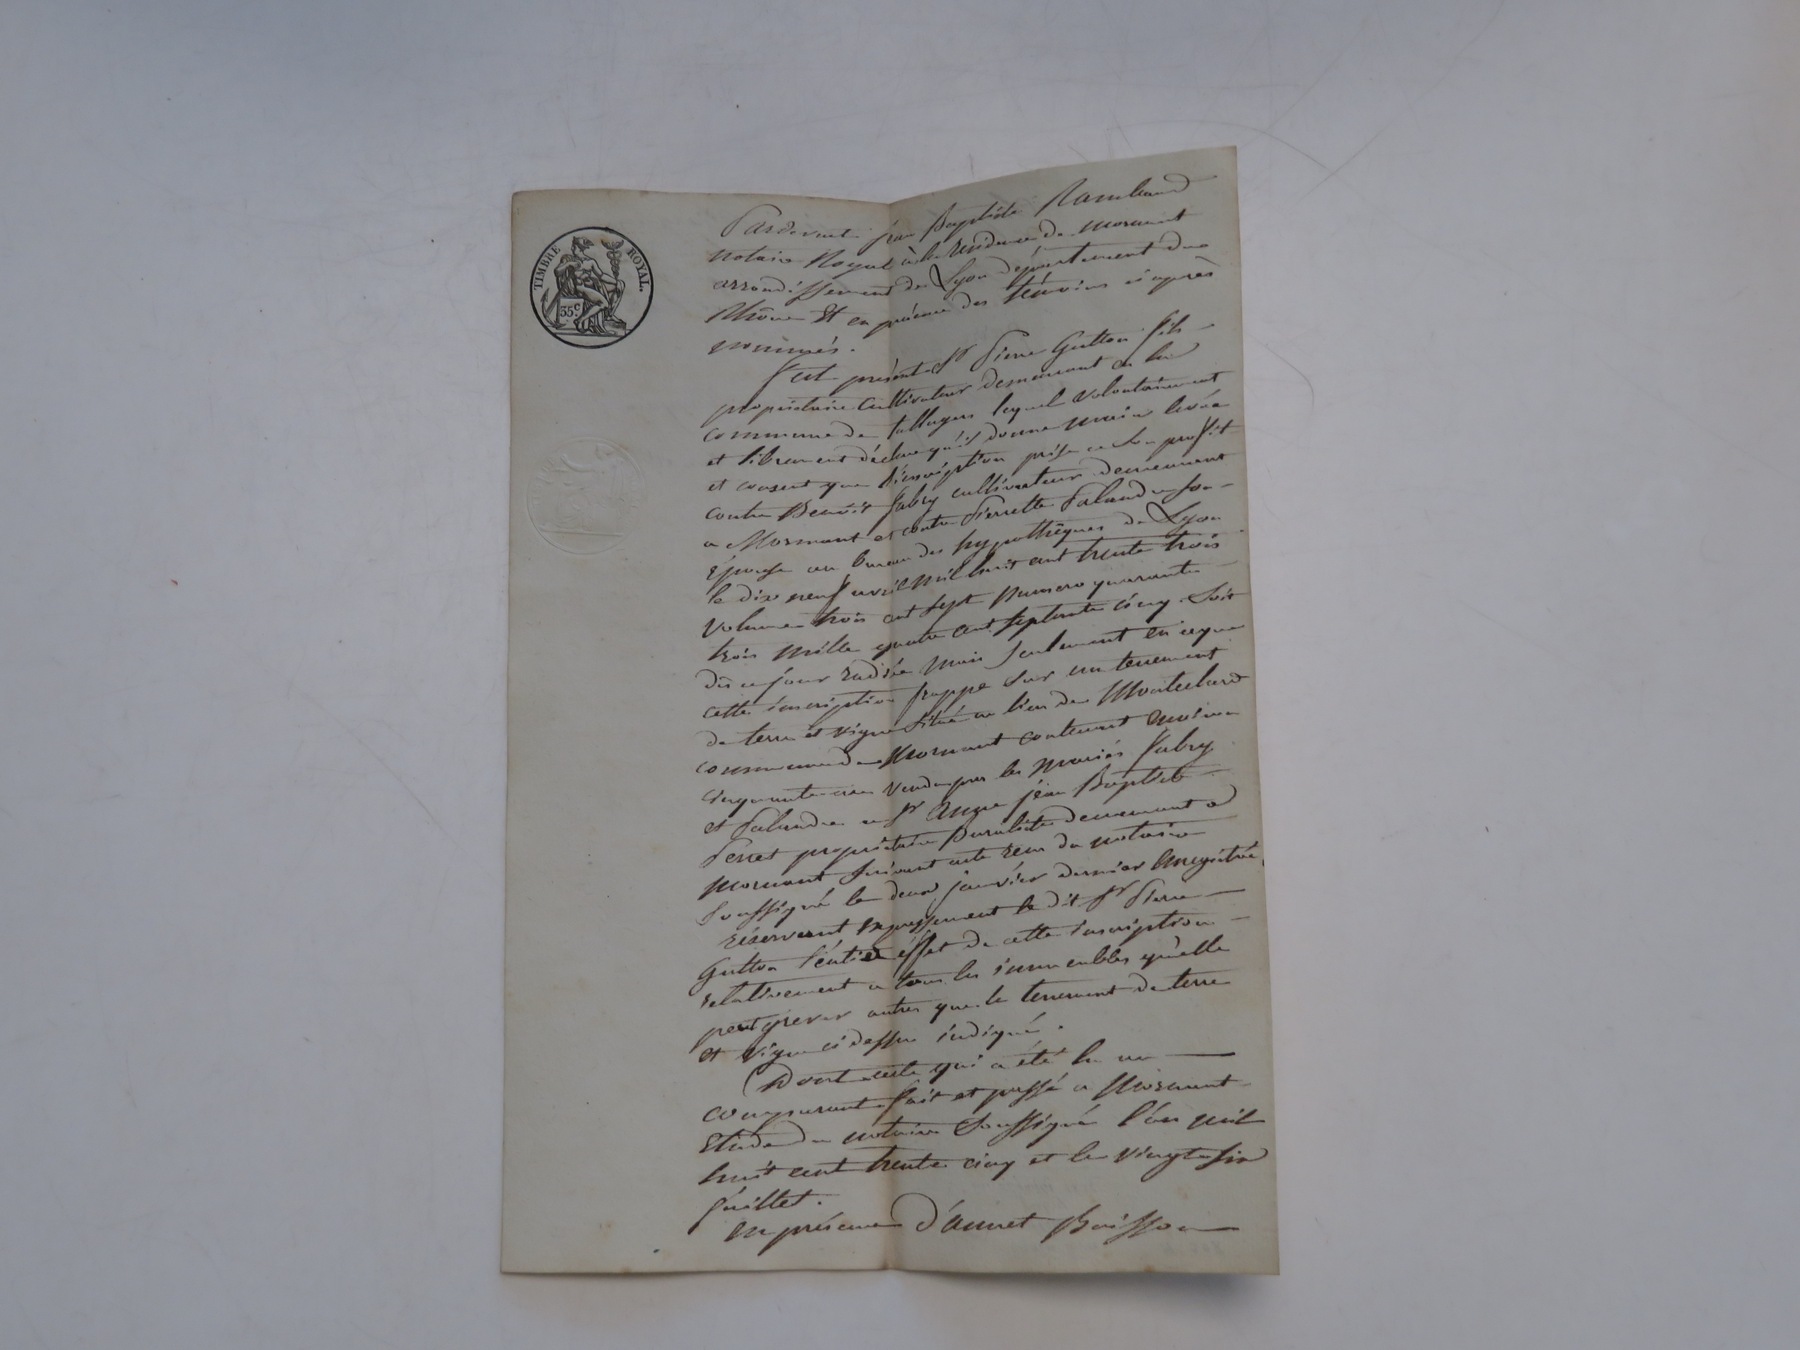 TIMBRE ROYAL.
35 c.
Pardevant jean Baptiste Rambaud
notaire Royal à la résidence de mornant
arrondissement de Lyon département du
Rhône Et en présence des témoins ci après
nommés.
fut présent Sr Pierre Gutton fils
propriétaire Cultivateur demeurant en la
commune de talluyers lequel volontairement
et librement déclare qu'il donne main levée
et consent que l'inscription prise a son profit
contre Benoit fabry cultivateur demeurant
a Mornant et contre Pierrette Palandre son
épouse au bureau des hypothèques de Lyon
le dix neuf avril mil huit cent trente trois
volume trois cent sept numero quarante
trois mille quatre cent septente cinq. Soit
dès ce jour radiée mais seulement en ce que
cette inscription frappe sur un tenement
de terre et vigne situé au lieu de Montclard
commune de Mornant contenant environ
cinquante ares vendu par les mariés fabry
et Palandre a Sr jean Baptiste
Perret propriétaire demeurant a
mornant suivant acte reçu du notaire
soussigné le deux janvier dernier Enregistré
réservant expressement le dit Sr Pierre
Gutton l'entier éffet de cette inscription
relativement a tous les immeubles qu'elle
peut grever autres que le tenement de terre
et vigne ci dessus indiqué.
Dont acte qui a été lu au
comparant fait et passé a Mornant
Etude du notaire soussigné l'an mil
huit cent trente cinq et le vingt six
juillet.
en présence d'annet Buisson